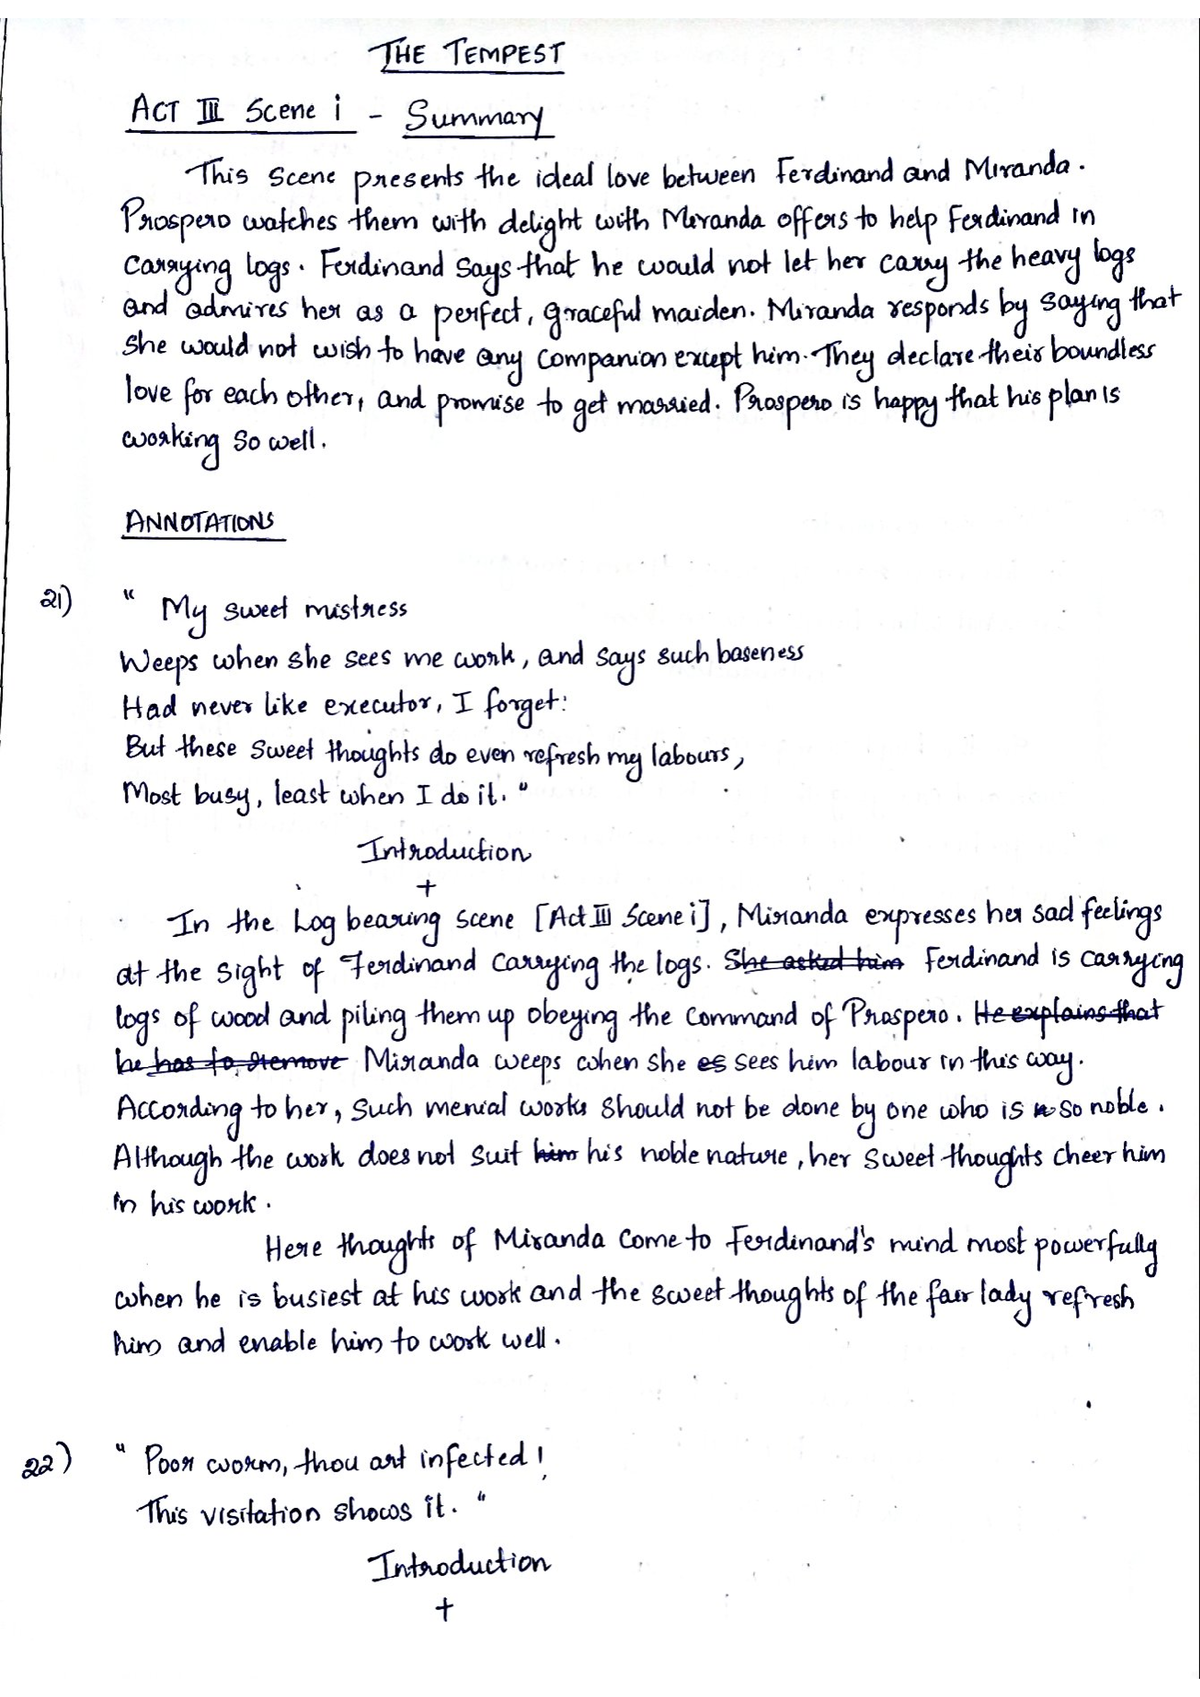 THE TEMPEST
ACT III Scene i - Summary
This Scene presents the ideal love between Ferdinand and Miranda.
Prospero watches them with delight with Miranda offers to help Ferdinand in
Carrying logs. Ferdinand Says that he would not let her carry the heavy logs
and admires her as a perfect, graceful maiden. Miranda responds by saying that
she would not wish to have any companion except him. They declare their boundless
love for each other, and promise to get married. Prospero is happy that his plan is
working so well.
ANNOTATIONS
21) " My sweet mistress
Weeps when she sees me work, and says such baseness
Had never like executor, I forget:
But these sweet thoughts do even refresh my labours,
Most busy, least when I do it. "
Introduction
+
In the Log bearing scene [Act III Scene i], Miranda expresses her sad feelings
at the sight of Ferdinand carrying the logs. She asked him Ferdinand is carrying
logs of wood and piling them up obeying the command of Prospero. He explains that
he has to remove Miranda weeps when she es sees him labour in this way.
According to her, such menial works should not be done by one who is n so noble.
Although the work does not suit him his noble nature, her sweet thoughts cheer him
in his work.
Here thoughts of Miranda come to Ferdinand's mind most powerfully
when he is busiest at his work and the sweet thoughts of the fair lady refresh
him and enable him to work well.
22) " Poor worm, thou art infected!
This visitation shows it. "
Introduction
+